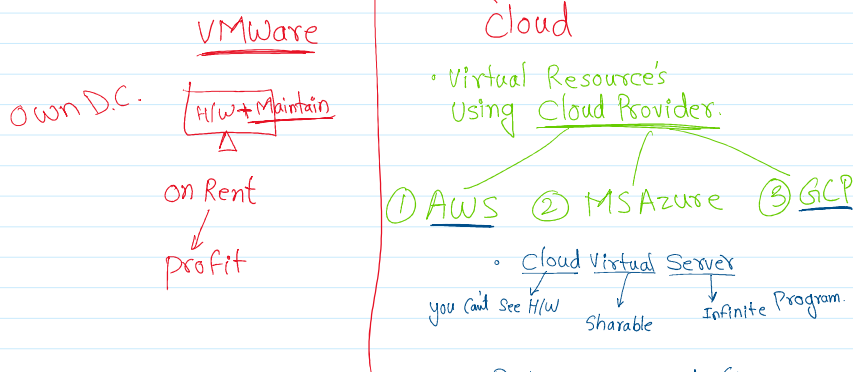 VMWare
own D.C.
H/W + Maintain
on Rent
Profit
Cloud
• Virtual Resource's
Using Cloud Provider.
① AWS ② MS Azure ③ GCP
• Cloud Virtual Server
you Can't See H/W
Sharable
Infinite Program.